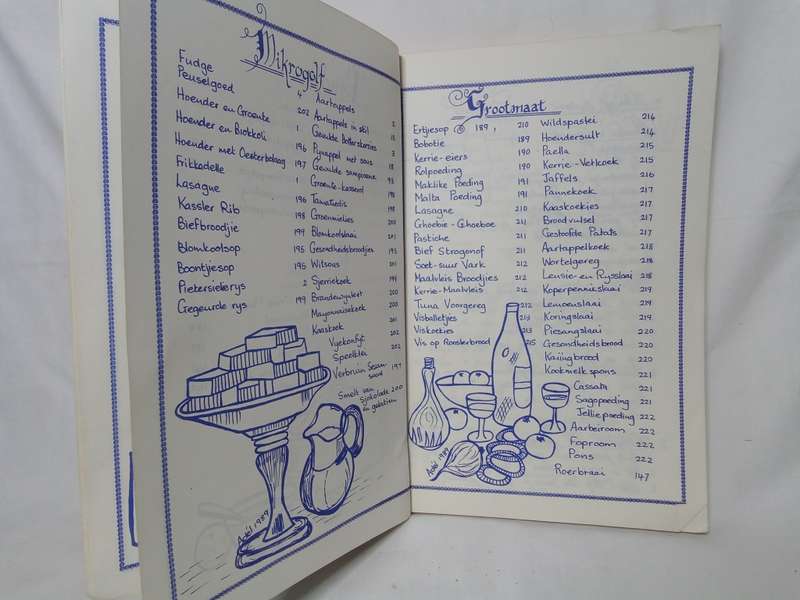 Mikrogolf
Fudge
Peuselgoed 4
Hoender en Groente 202
Hoender en Brokkoli 1
Hoender met Oesterbolaag 196
Frikkadelle 197
Lasagne 1
Kassler Rib 196
Biefbroodjie 194
Blomkoolsop 195
Boontjiesop 195
Pietersielierys 2
Gegeurde rys 199
Aartappels
Aartappels in stil 2
Gevulde Botterskorsies
Pynappel met sous 3
Gevulde sampioene 18
Groente-kasserol
Tamatiedis 198
Groenmielies 198
Blomkoolslaai 200
Gesondheidsbroodjies 193
Witsous 201
Sjerriekoek 199
Brandewyntert 200
Mayonnaisekoek
Kaaskoek
Vyekonfyt 202
Speelklei 202
Verbruin Sesamsaad 197
Smelt van sjokolade 200
en gelatien
April 1989
Grootmaat
Ertjiesop @ 189, 210
Bobotie 189
Kerrie-eiers 190
Rolpoeding 190
Maklike Poeding 191
Malta Poeding 191
Lasagne 210
Ghoebie-Ghoeboe 191
Pastiche 211
Bief Strogonof 211
Soet-suur Vark 212
Maalvleis Broodjies 212
Kerrie-Maalvleis 212
Tuna Voorgereg 212
Visballetjies 213
Viskoekies 213
Vis op Roosterbrood 215
Wildspastei 214
Hoendersult 214
Paella 215
Kerrie-Vetkoek 215
Jaffels 216
Pannekoek 217
Kaaskoekies 217
Broodvulsel 217
Gestoofde Patats 217
Aartappelkoek 218
Wortelgereg 218
Lensie-en Ryssslaai 218
Koperpennieslaai 219
Lemoenslaai 219
Koringslaai 219
Piesangslaai 220
Gesondheidsbrood 220
Kaiingbrood 220
Kookmelkspons 221
Cassata 221
Sagopoeding 221
Jelliepoeding 222
Aarbeiroom 222
Foproom 222
Pons 222
Roerbraai 147
April 1989